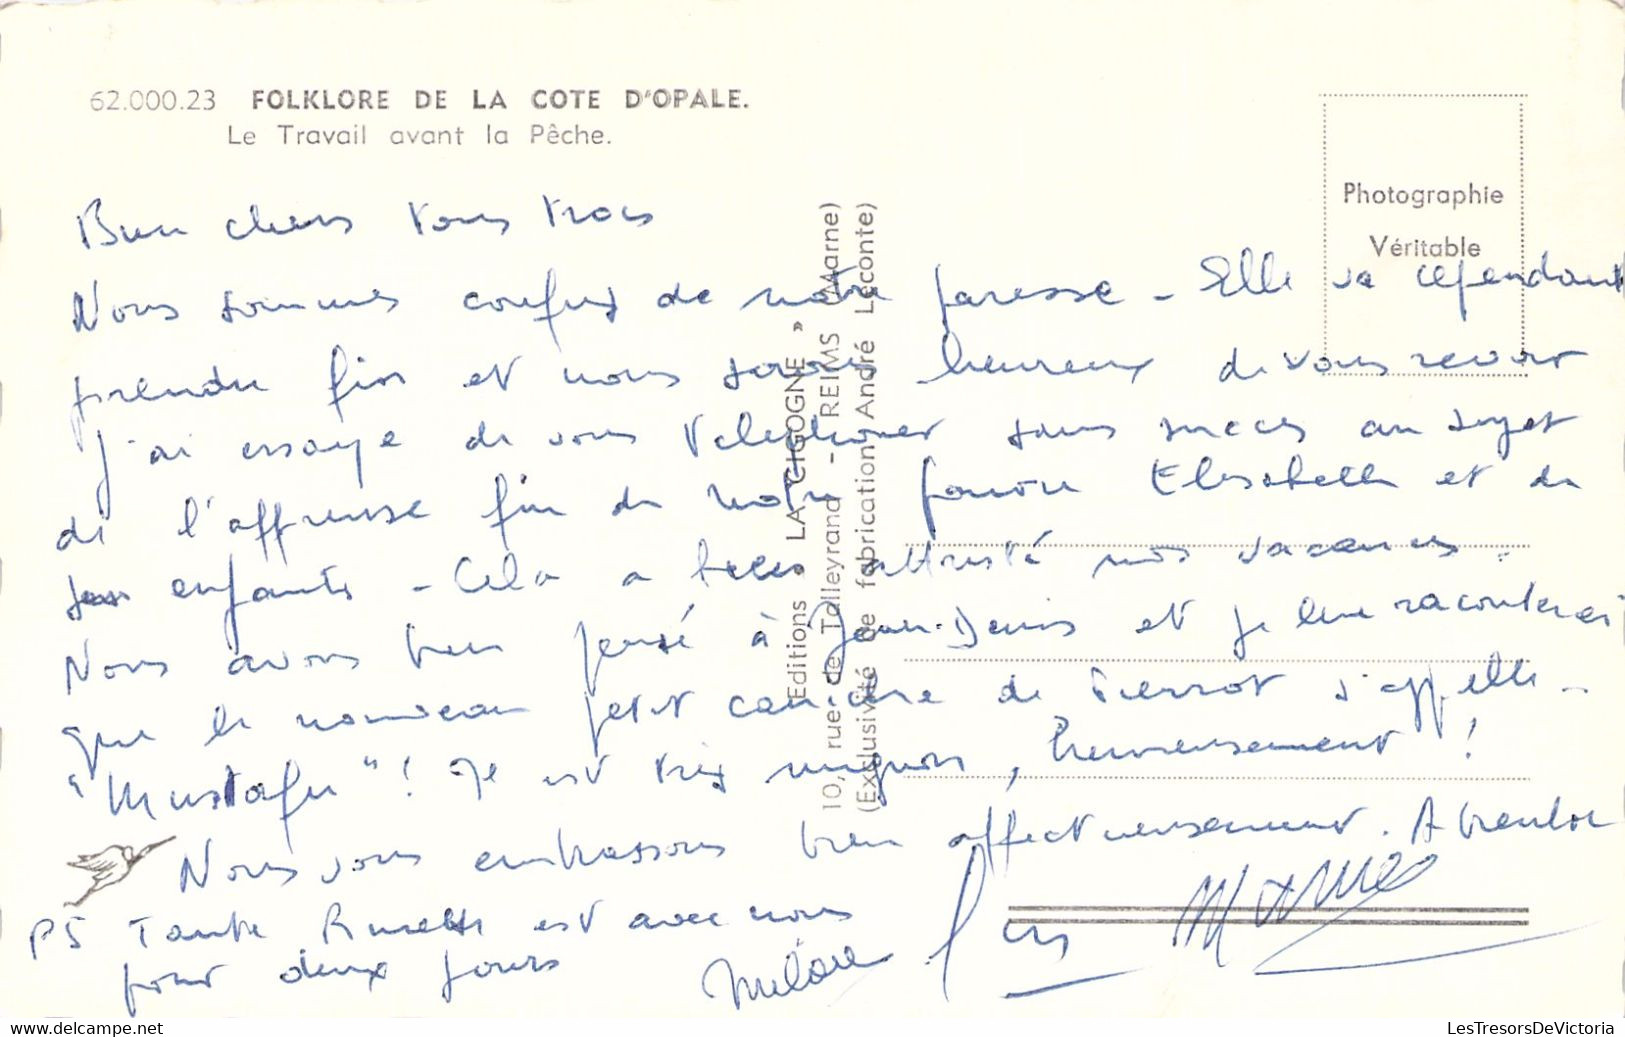 62.000.23 FOLKLORE DE LA COTE D'OPALE.
Le Travail avant la Pêche.
Photographie
Véritable
Editions LA "CIGOGNE"
10, rue de Talleyrand - REIMS (Marne)
(Exclusivité de fabrication André Leconte)
Bien chers vous trois
Nous sommes confus de notre paresse - Elle va cependant
prendre fin et nous serons heureux de vous revoir
J'ai essayé de vous téléphoner sans succès au sujet
de l'affreuse fin de notre Elisabeth et de
ses enfants - Cela a attristé nos vacances.
Nous avons bien pensé à Jean-Denis et je leur raconterai
que le nouveau petit caniche de Pierrot s'appelle -
"Mustafa" ! Il est très mignon, heureusement !
Nous vous embrassons bien affectueusement. A bientôt
PS Tante est avec nous
pour deux jours